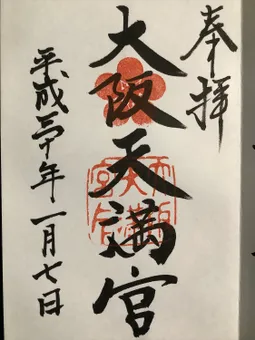 奉拝
大阪天満宮
平成三十年一月七日